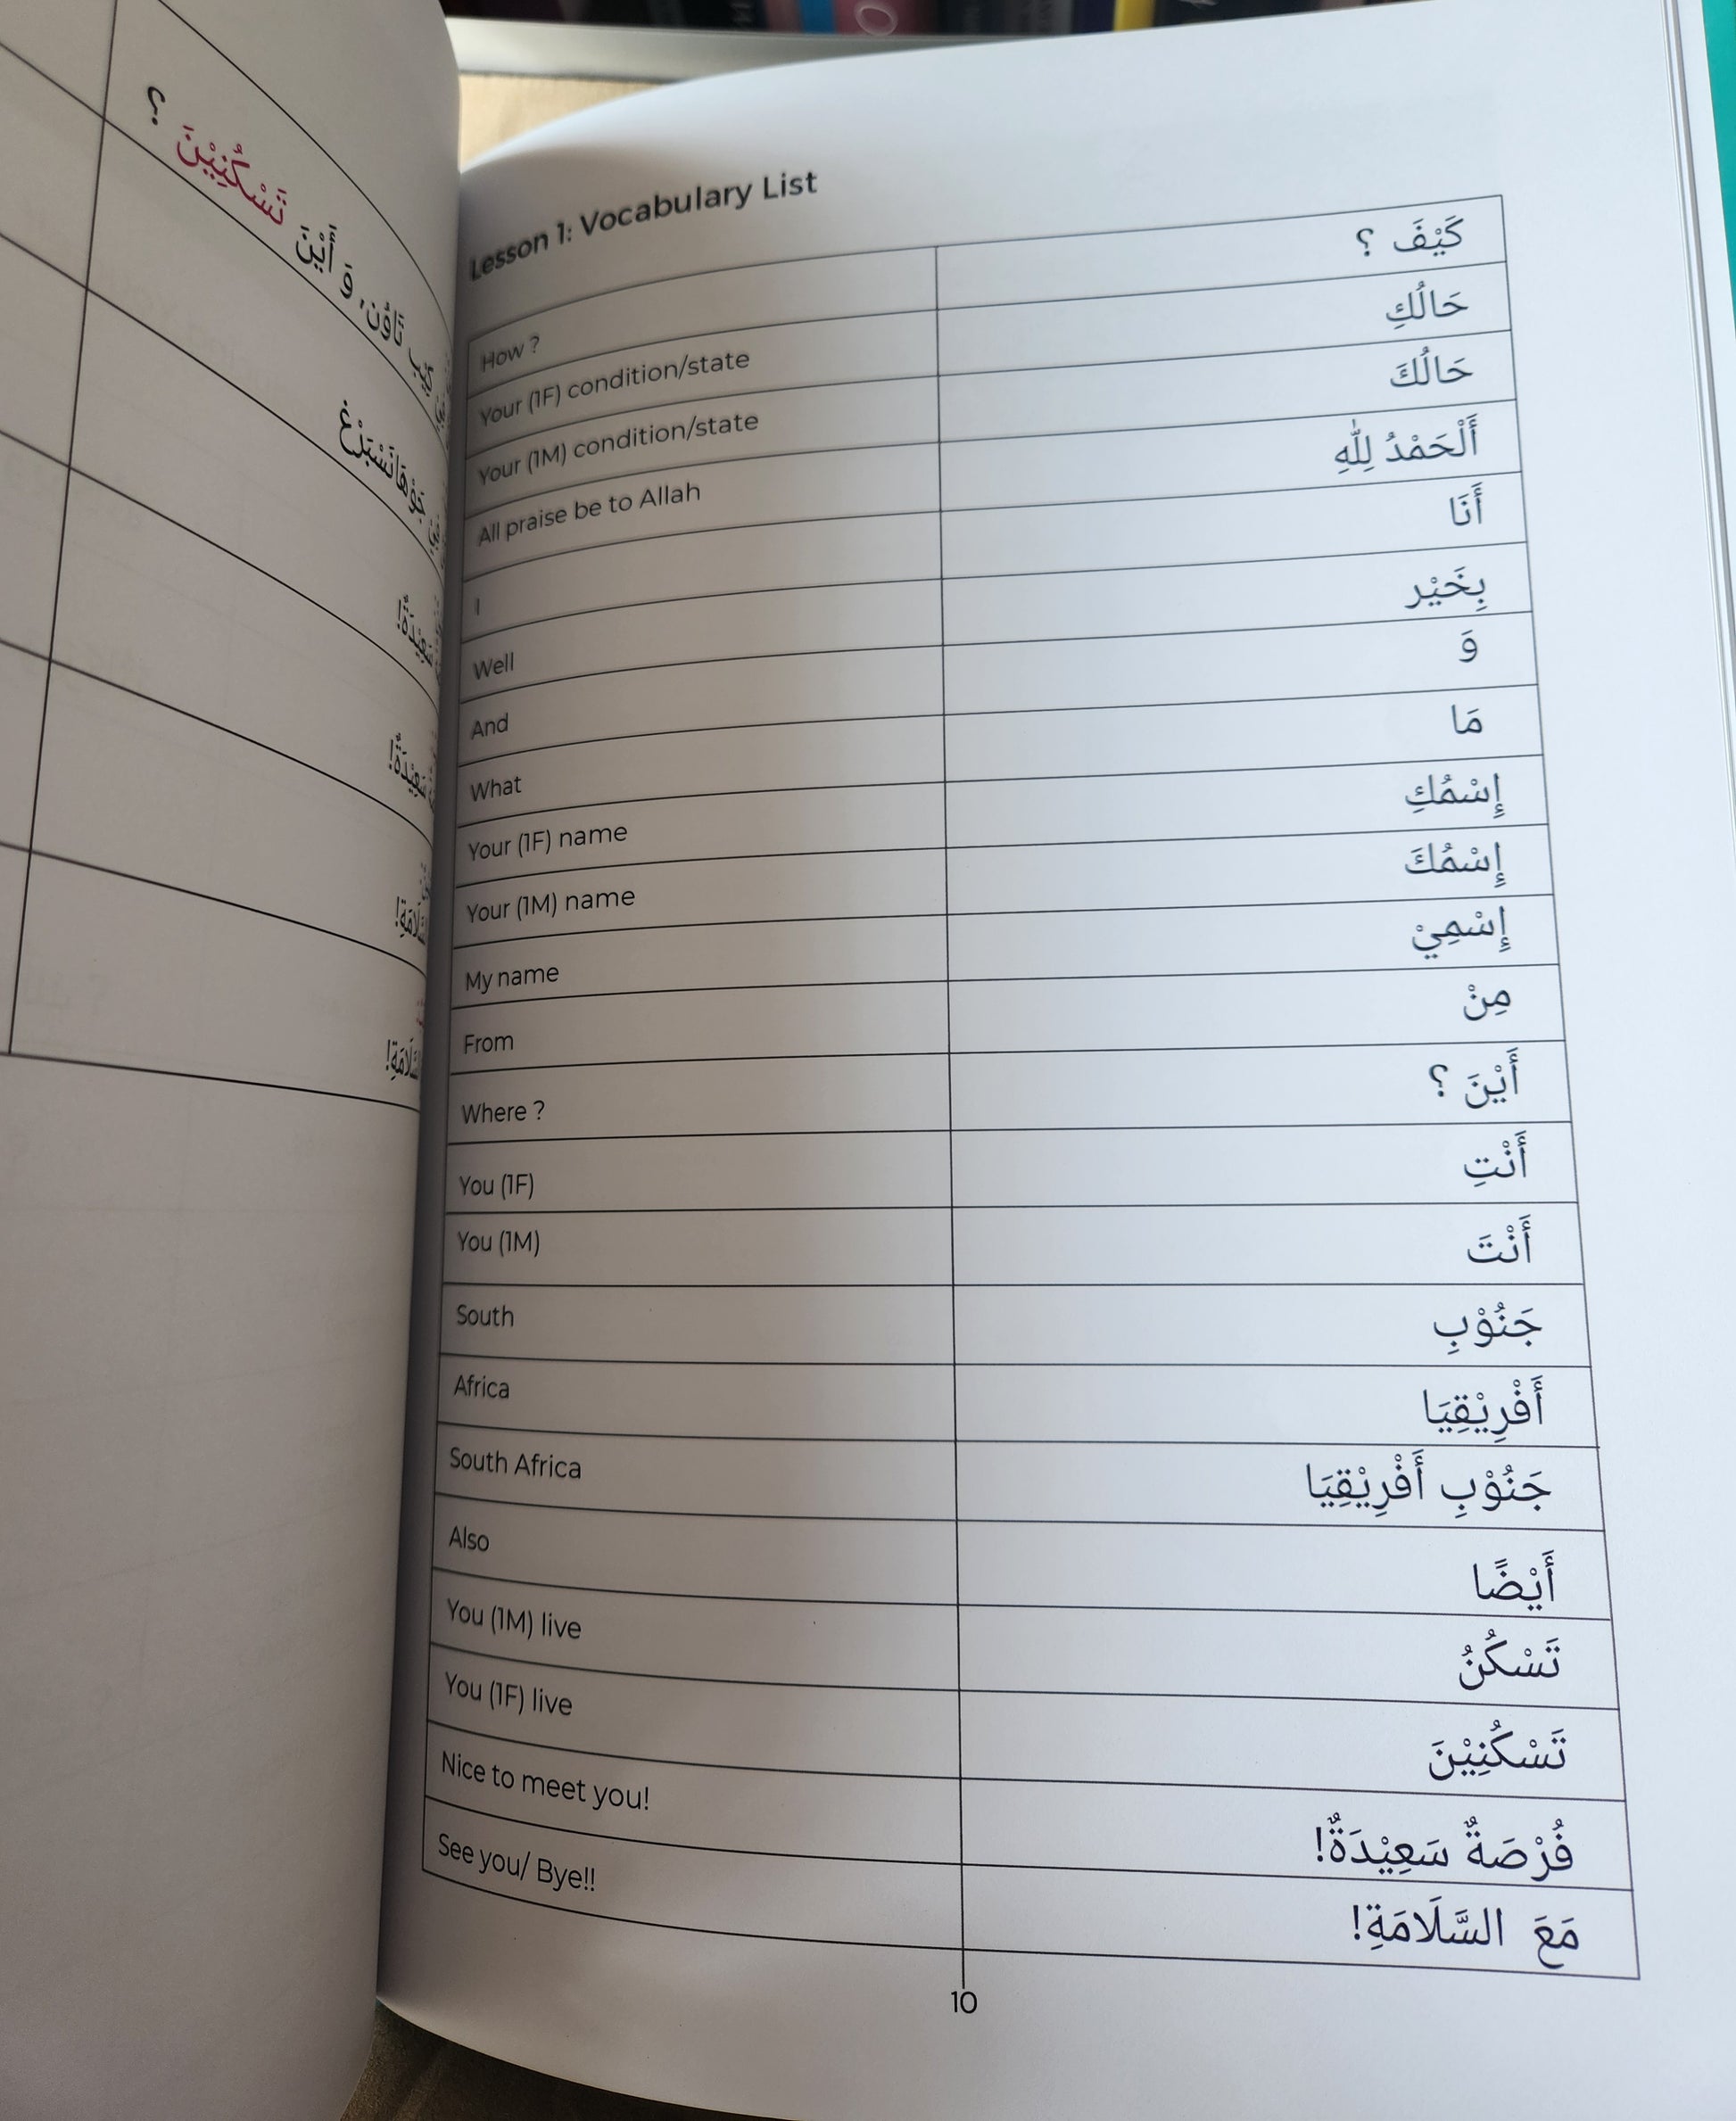 تَسْكُنِيْنَ ؟
كِيْب تَاوُن، وَ أَيْنَ
جَوْهَانَسْبَرْغ
سَعِيْدَةٌ!
سَعِيْدَةٌ!
Lesson 1: Vocabulary List
How ? كَيْفَ ؟
Your (1F) condition/state حَالُكِ
Your (1M) condition/state حَالُكَ
All praise be to Allah أَلْحَمْدُ لِلّٰهِ
I أَنَا
Well بِخَيْر
And وَ
What مَا
Your (1F) name إِسْمُكِ
Your (1M) name إِسْمُكَ
My name إِسْمِيْ
From مِنْ
Where ? أَيْنَ ؟
You (1F) أَنْتِ
You (1M) أَنْتَ
South جَنُوْبِ
Africa أَفْرِيْقِيَا
South Africa جَنُوْبِ أَفْرِيْقِيَا
Also أَيْضًا
You (1M) live تَسْكُنُ
You (1F) live تَسْكُنِيْنَ
Nice to meet you! فُرْصَةٌ سَعِيْدَةٌ!
See you/ Bye!! مَعَ السَّلَامَةِ!
10